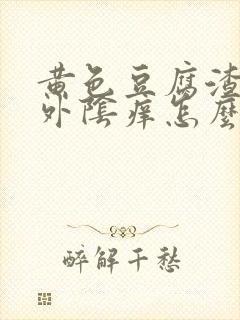 黄色豆腐渣
外陰痒怎麼
醉解千愁